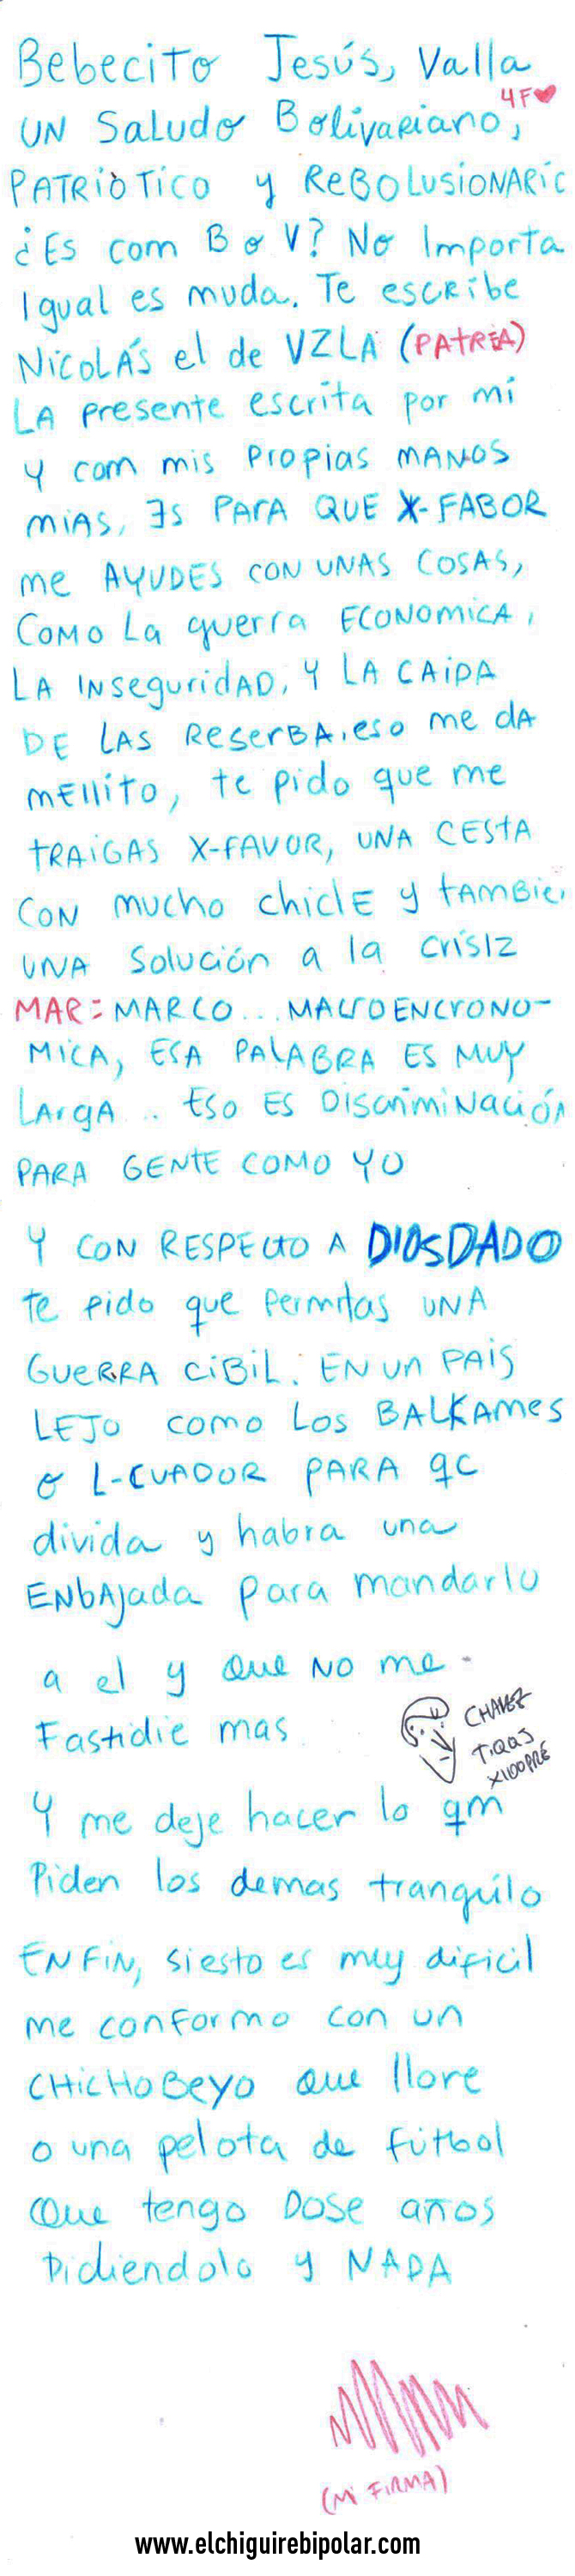 Bebecito Jesús, Valla
4F❤
UN Saludo Bolivariano,
PATRIÒTICO y ReBOLUSIONARIC
¿Es com B o V? No Importa
Igual es muda. Te escribe
NICOLÁS el de VZLA (PATRIA)
LA presente escrita por mi
y com mis Propias MANOS
MIAS, Is PARA QUE X-FABOR
me AYUDES CON UNAS COSAS,
COMO La guerra ECONOMICA,
LA INseguridAD, Y LA CAIDA
DE LAS ReserBA.eso me dA
mEllito, te pido que me
TRAIGAS X-FAVOR, UNA CEStA
CON mucho chiclE y tAMBie
UNA Solución a la crisiz
MAR: MARCO... MACROENCRONO-
MICA, ESA PALABRA ES MUY
LArgA.. ESO ES DiscrimiNación
PARA GENTE COMO YO
Y CON RESPECTO A DIOSDADO
te pido que Permitas UNA
GUERRA CiBiL. EN un PAIS
LEJO como Los BALKAmes
o L-CUADOR PARA qc
divida y habra una
ENbAjada para mandarlo
a el y Que NO me
Fastidie mas
CHAVEZ
TiQQS
X100PRE
Y me deje hacer lo qm
Piden los demas tranquilo
ENFIN, siesto es muy dificil
me conformo con un
CHicHoBeyo Que llore
o una pelota de fútbol
Que tengo DOSE años
Pidiendolo y NADA
(Mi FIRMA)
www.elchiguirebipolar.com